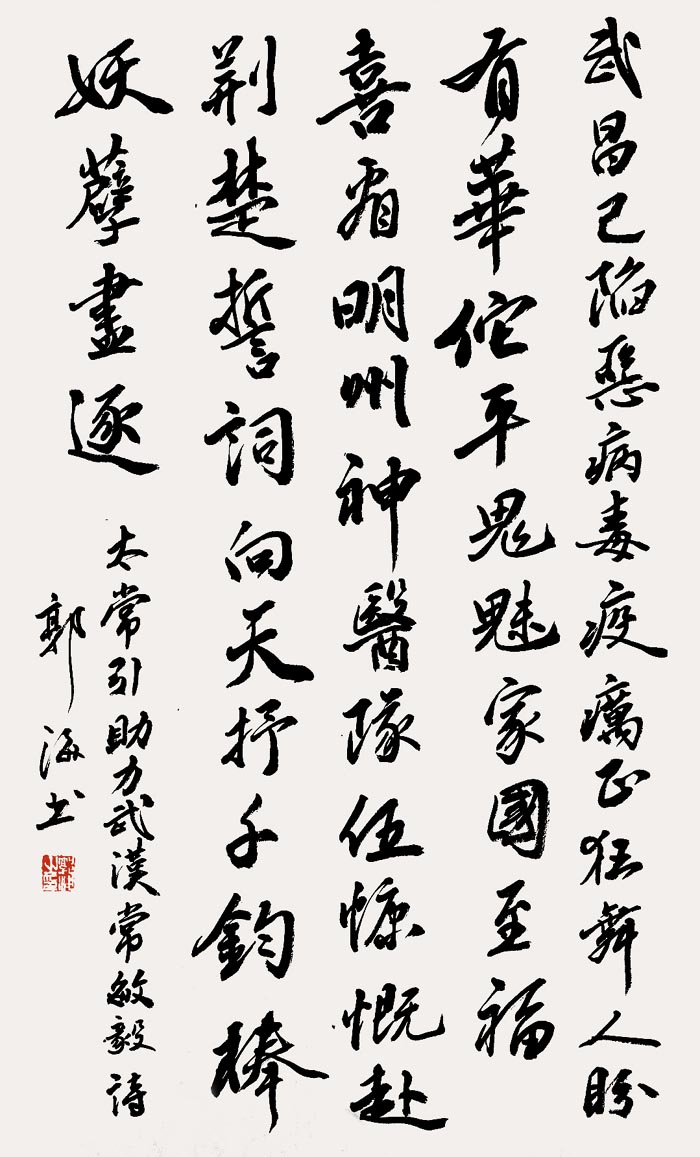 武昌已陷惡病毒疫癘正狂舞人盼
有華佗平鬼魅家國至福
喜看明州神醫隊伍慷慨赴
荆楚誓詞向天抒千鈞棒
妖孽盡逐
太常引助力武漢常敏毅詩
郭海书